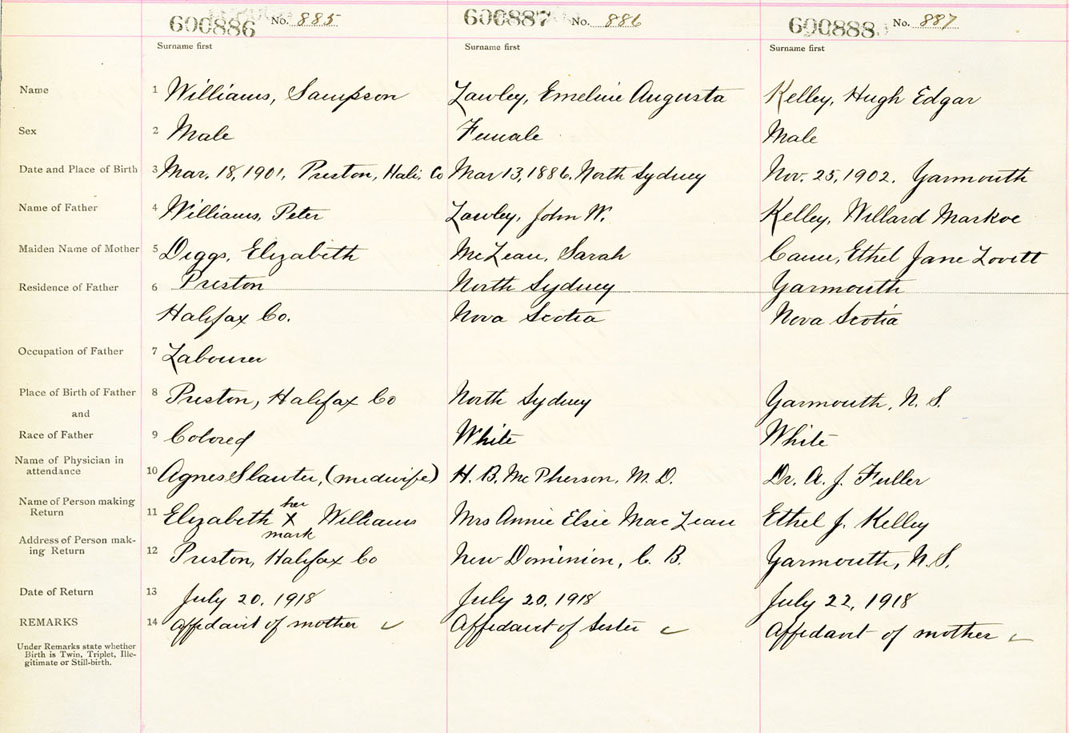 600886 No. 885 600887 No. 886 600888 No. 887
Surname first Surname first Surname first
Name 1 Williams, Sampson Lawley, Emeline Augusta Kelley, Hugh Edgar
Sex 2 Male Female Male
Date and Place of Birth 3 Mar. 18, 1901, Preston, Hali. Co Mar 13, 1886. North Sydney Nov. 25, 1902. Yarmouth
Name of Father 4 Williams, Peter Lawley, John W. Kelley, Willard Markoe
Maiden Name of Mother 5 Diggs, Elizabeth McLean, Sarah Cann, Ethel Jane Lovitt
Residence of Father 6 Preston North Sydney Yarmouth
Halifax Co. Nova Scotia Nova Scotia
Occupation of Father 7 Labourer
Place of Birth of Father 8 Preston, Halifax Co North Sydney Yarmouth, N. S.
and
Race of Father 9 Colored White White
Name of Physician in
attendance 10 Agnes Slawter, (midwife) H. B. McPherson, M. D. Dr. A. J. Fuller
Name of Person making
Return 11 Elizabeth her X mark Williams Mrs Annie Elsie MacLean Ethel J. Kelley
Address of Person mak-
ing Return 12 Preston, Halifax Co New Dominion, C. B. Yarmouth, N. S.
Date of Return 13 July 20, 1918 July 20, 1918 July 22, 1918
REMARKS 14 Affidavit of mother Affidavit of Sister Affidavit of mother
Under Remarks state whether
Birth is Twin, Triplet, Ille-
gitimate or Still-birth.